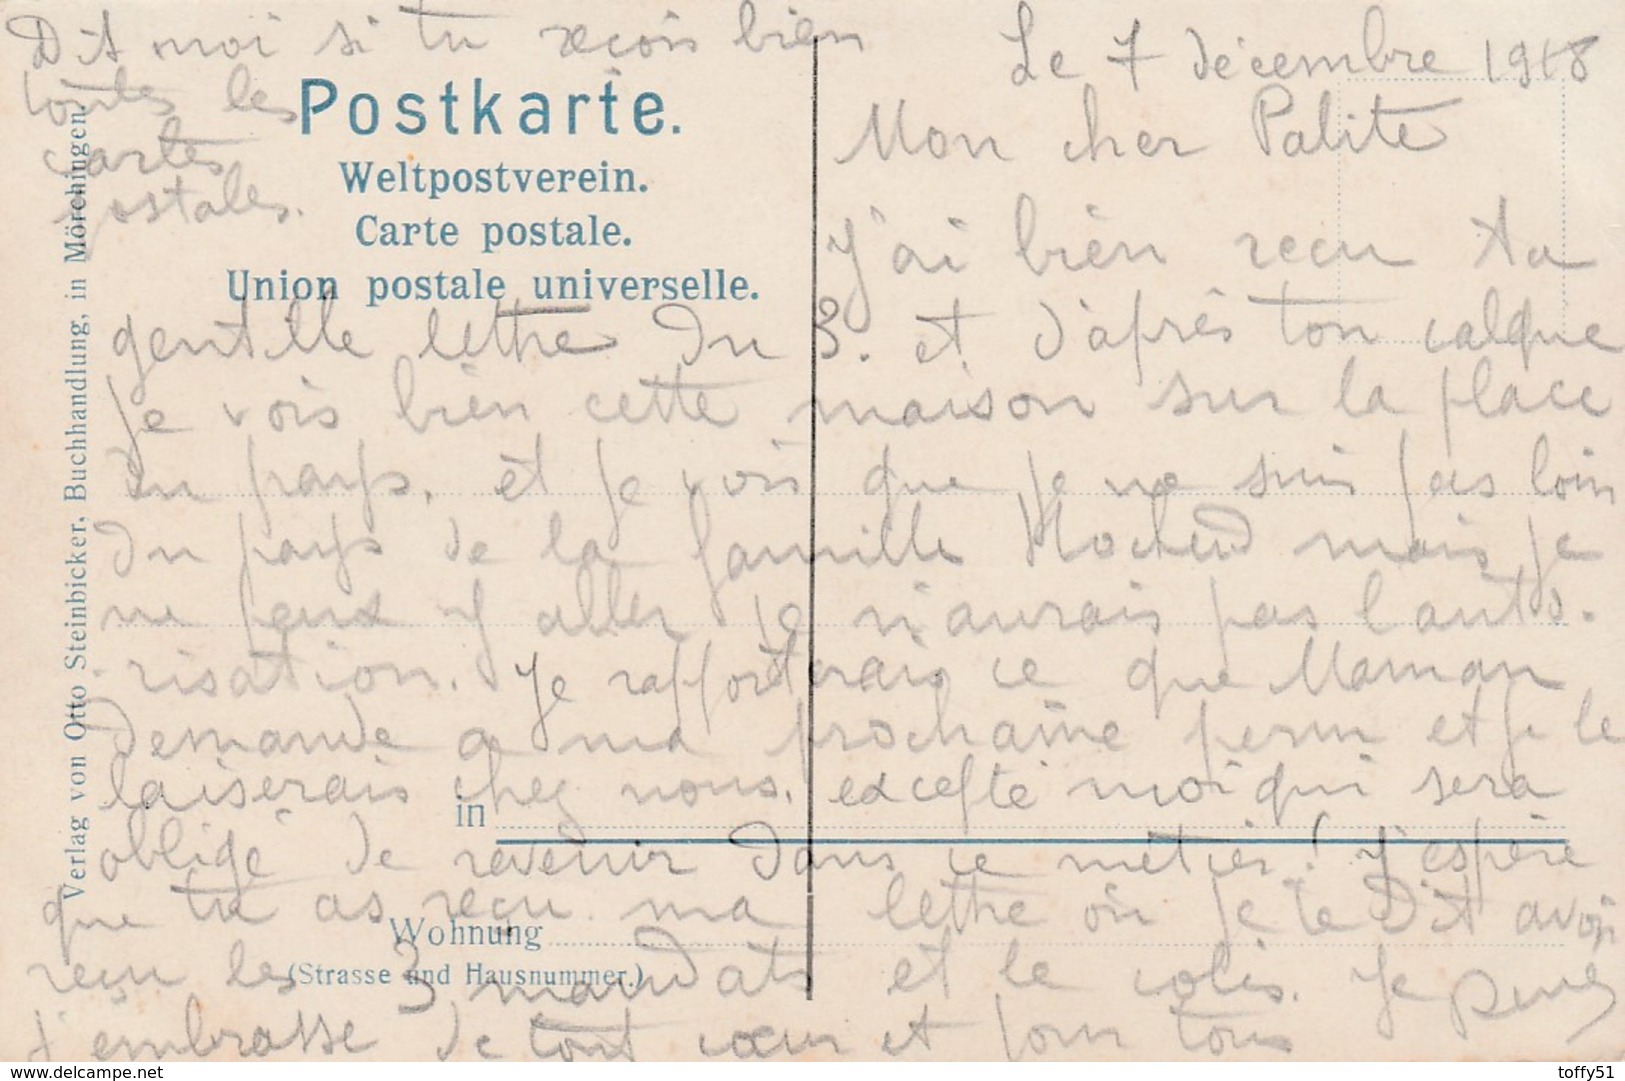 Dit moi si tu reçois bien
toutes les
cartes
postales.
Le 7 décembre 1918
Mon cher Palite
J'ai bien reçu ta
gentille lettre du 3. et d'après ton calque
je vois bien cette maison sur la place
du pays. et je vois que je ne suis pas loin
du pays de la famille mais je
ne peux y aller je n'aurais pas l'auto-
risation. Je rapporterais ce que Maman
demande a ma prochaine perm et je le
laiserais chez nous. excepte moi qui sera
obligé de revenir dans ce métier! J'espère
que tu as reçu ma lettre où je te dit avoir
reçu les 3 mandats et le colis. Je
t'embrasse de tout cœur et pour tous
Postkarte.
Weltpostverein.
Carte postale.
Union postale universelle.
in
Wohnung
(Strasse und Hausnummer.)
Verlag von Otto Steinbicker, Buchhandlung, in Mörchingen.
delcampe.net
toffy51